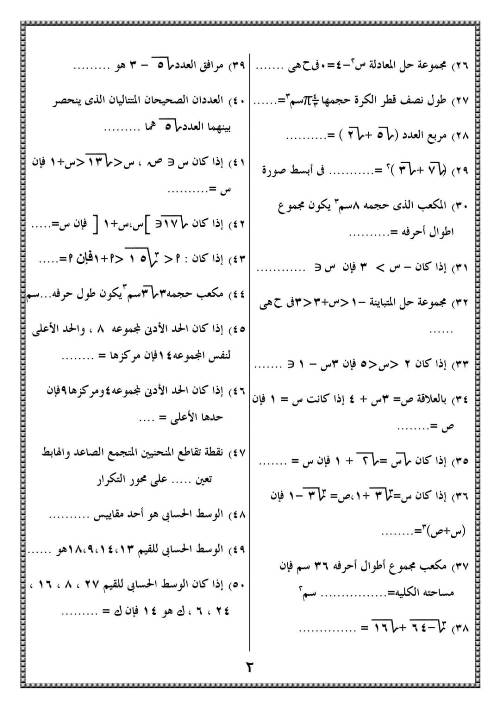 ٢٦) مجموعة حل المعادلة س٢–٤=٠فى ح هى .......
٢٧) طول نصف قطر الكرة حجمها π سم٣=......
٢٨) مربع العدد (√٥ + √٢) =..........
٢٩) (√٧ + √٣)٢ =........... فى أبسط صورة
٣٠) المكعب الذى حجمه ٨سم٣ يكون مجموع
اطوال أحرفه =..........
٣١) إذا كان – س > ٣ فإن س ∋ ............
٣٢) مجموعة حل المتباينة –١<س+٣<٣فى ح هى
......
٣٣) إذا كان ٢ <س<٥ فإن ٣س – ١ ∋ .......
٣٤) بالعلاقة ص= ٣س + ٤ إذا كانت س = ١ فإن
ص =........
٣٥) إذا كان √س = √٢ + ١ فإن س = .......
٣٦) إذا كان س= √٣ +١،ص= √٣ –١ فإن
(س+ص)٣=........
٣٧) مكعب مجموع أطوال أحرفه ٣٦ سم فإن
مساحته الكليه=................ سم٢
٣٨) ∛–٦٤ + √١٦ = ..............
٣٩) مرافق العدد √٥ – ٣ هو .........
٤٠) العددان الصحيحان المتتاليان الذى ينحصر
بينهما العدد √٥ هما .........
٤١) إذا كان س ∋ صـ ، س<√١٣<س+١ فإن
س =..........
٤٢) إذا كان √١٧∋ ]س،س+١ [ فإن س=.....
٤٣) إذا كان : ٩ < ∛١٥ <٩+١فإن ٩=.....
٤٤) مكعب حجمه٣√٣سم٣يكون طول حرفه...سم
٤٥) إذا كان الحد الأدنى لمجموعه ٨ ، والحد الأعلى
لنفس المجموعه ١٤فإن مركزها = ........
٤٦) إذا كان الحد الأدنى لمجموعه٤ومركزها٩فإن
حدها الأعلى = ....
٤٧) نقطة تقاطع المنحنيين المتجمع الصاعد والهابط
تعين ..... على محور التكرار
٤٨) الوسط الحسابى هو أحد مقاييس ..........
٤٩) الوسط الحسابى للقيم ١٨،٩،١٤،١٣هو ......
٥٠) إذا كان الوسط الحسابى للقيم ٢٧ ، ٨ ، ١٦ ،
٢٤ ، ٦ ، ك هو ١٤ فإن ك = .........
٢